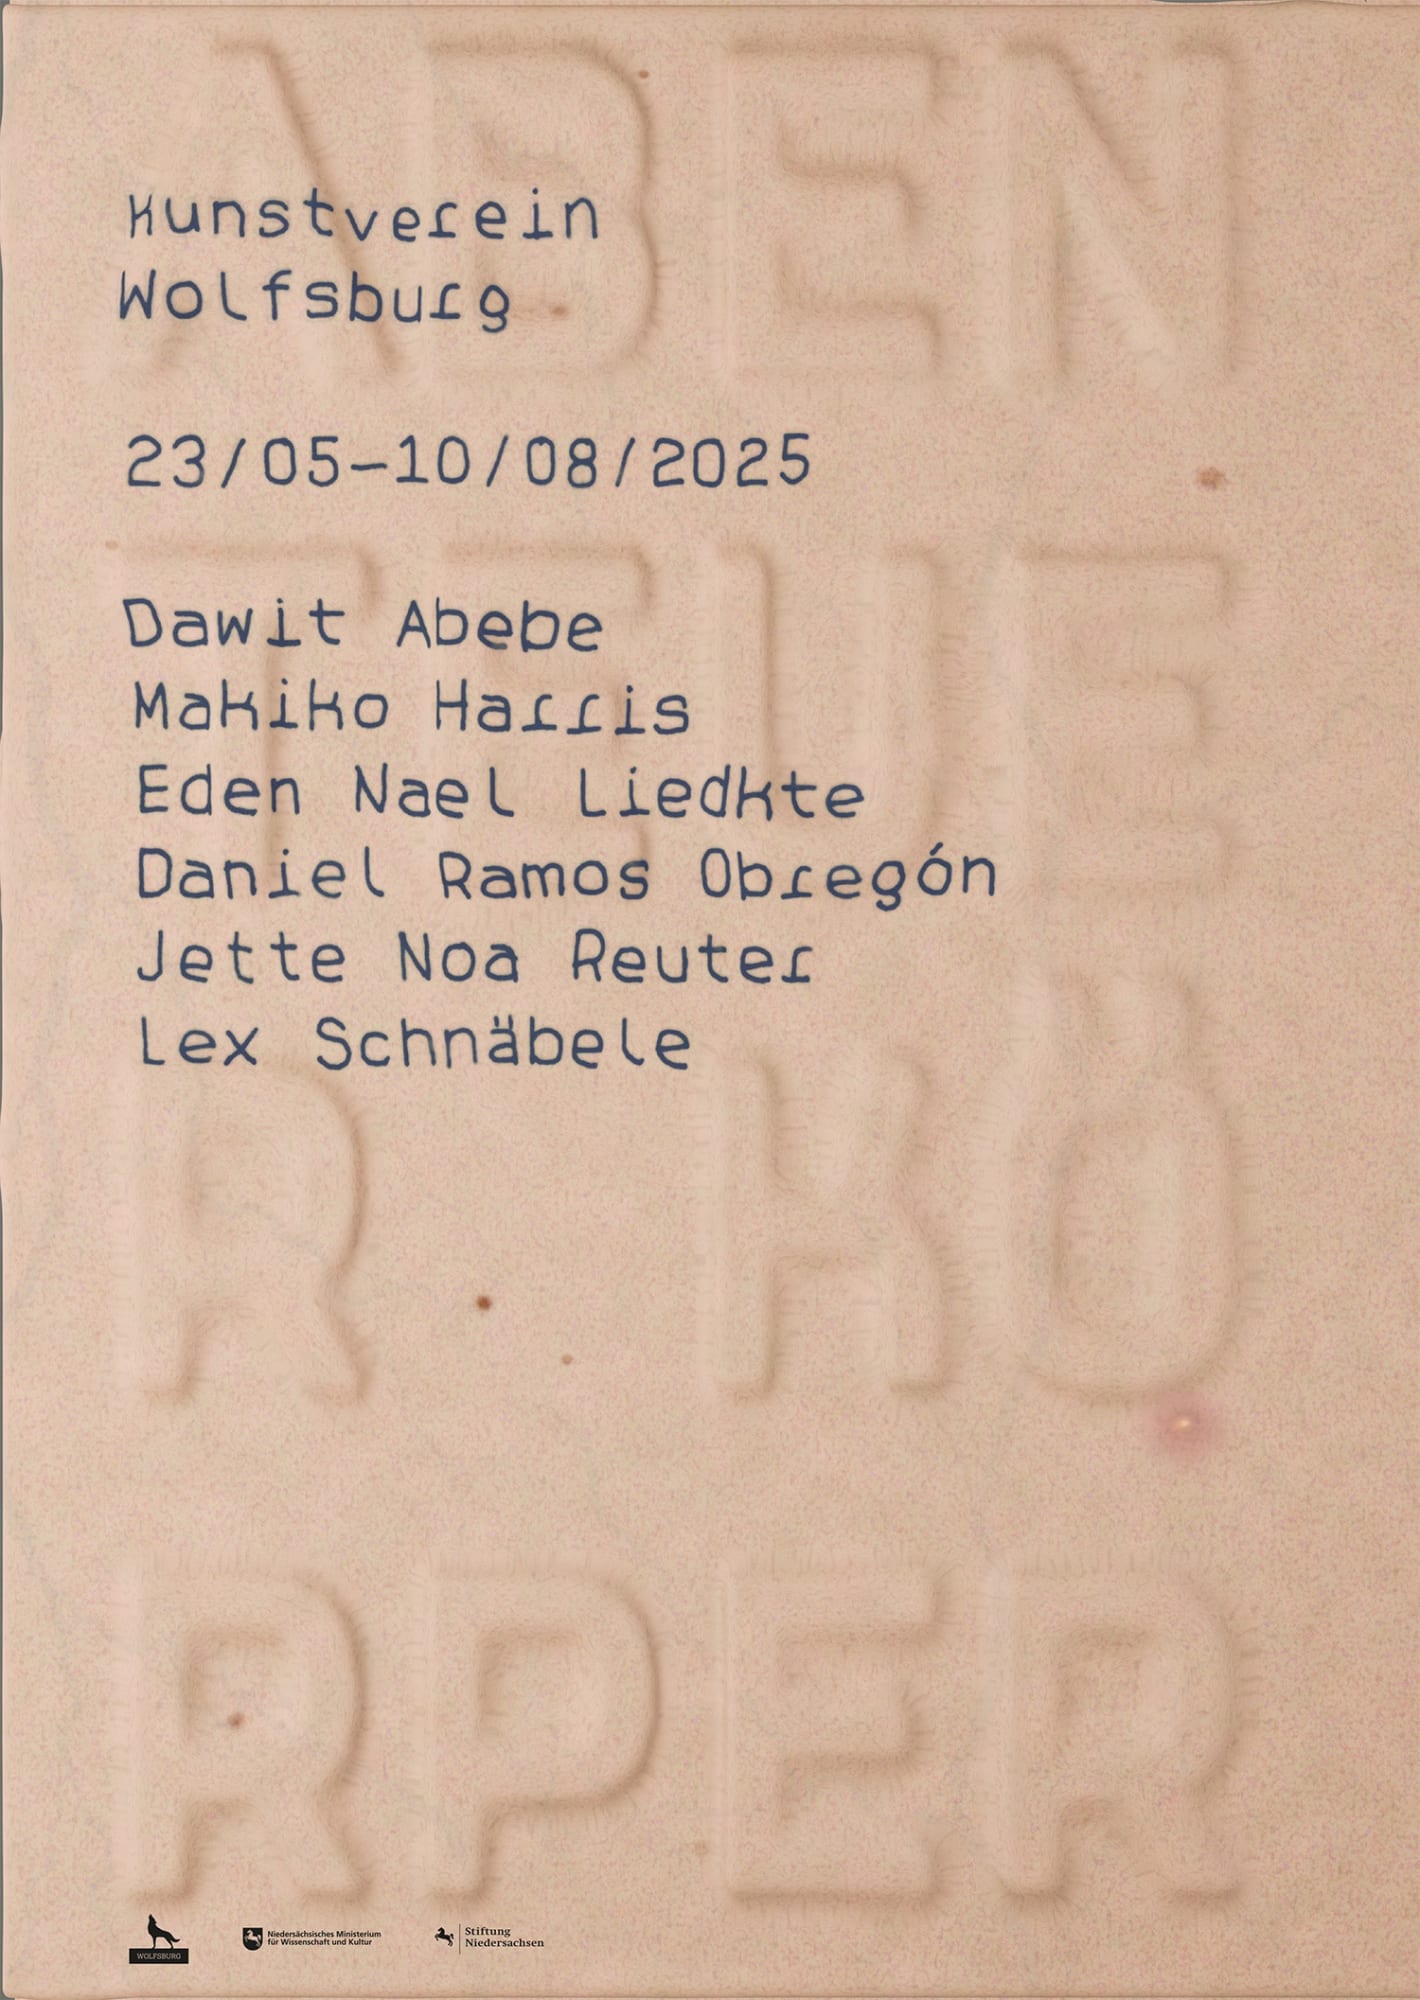 ABEN
Kunstverein
Wolfsburg
23/05–10/08/2025
TEUE
Dawit Abebe
Makiko Harris
Eden Nael Liedkte
Daniel Ramos Obregón
Jette Noa Reuter
Lex Schnäbele
R KÖ
RPER
WOLFSBURG
Niedersächsisches Ministerium
für Wissenschaft und Kultur
Stiftung
Niedersachsen